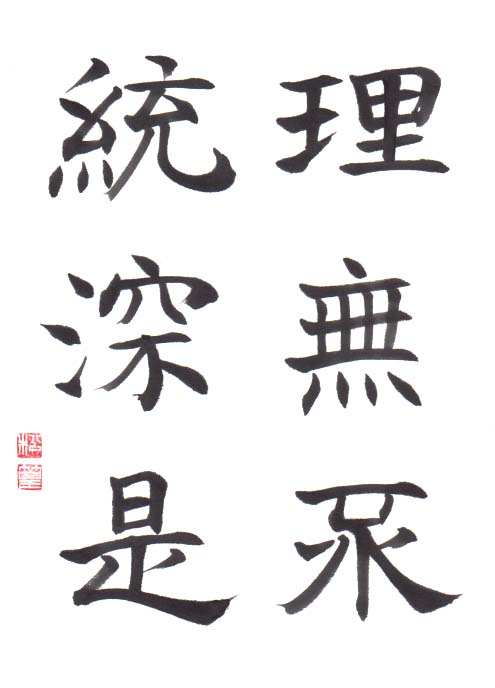 理無
統深是